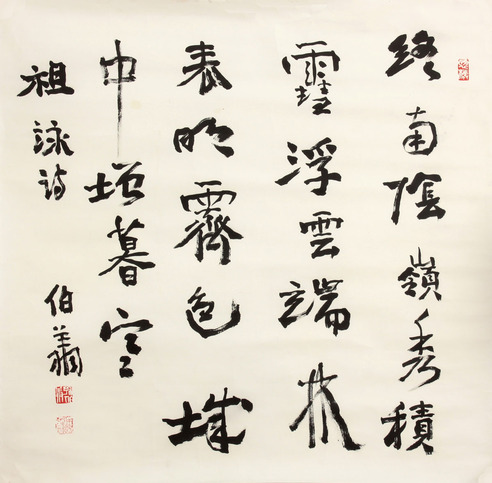 終南陰嶺秀積
雪浮雲端林
表明霽色城
中增暮寒
祖詠詩
伯